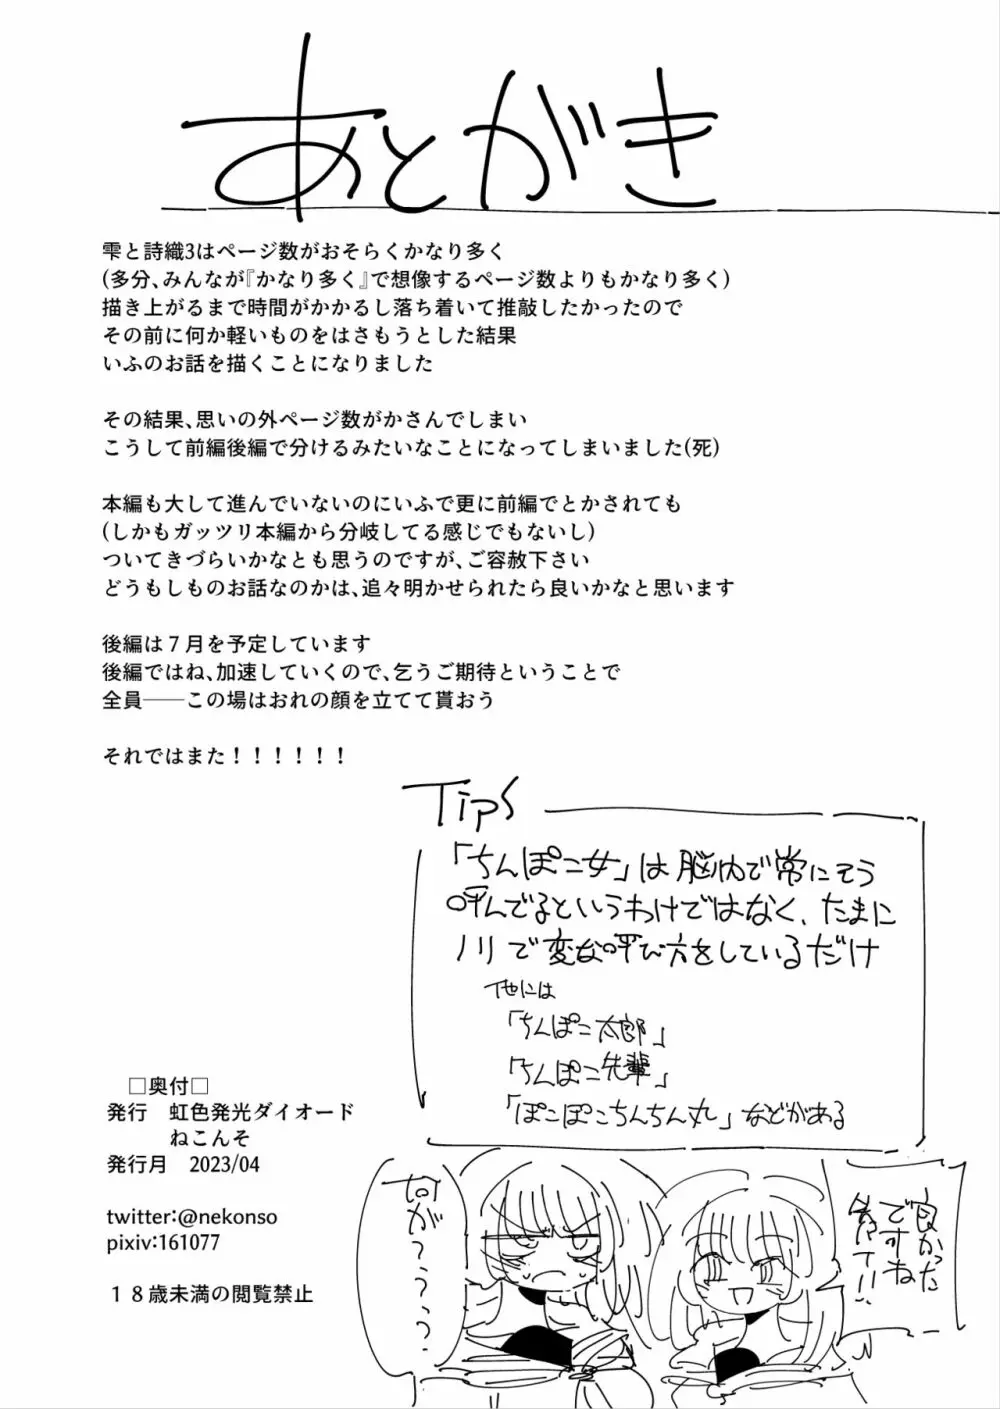 あとがき
雫と詩織3はページ数がおそらくかなり多く
(多分、みんなが『かなり多く』で想像するページ数よりもかなり多く)
描き上がるまで時間がかかるし落ち着いて推敲したかったので
その前に何か軽いものをはさもうとした結果
いふのお話を描くことになりました
その結果、思いの外ページ数がかさんでしまい
こうして前編後編で分けるみたいなことになってしまいました(死)
本編も大して進んでいないのにいふで更に前編でとかされても
(しかもガッツリ本編から分岐してる感じでもないし)
ついてきづらいかなとも思うのですが、ご容赦下さい
どうもしものお話なのかは、追々明かせられたら良いかなと思います
後編は７月を予定しています
後編ではね、加速していくので、乞うご期待ということで
全員──この場はおれの顔を立てて貰おう
それではまた！！！！！！
Tips
「ちんぽこ女」は脳内で常にそう
呼んでるというわけではなく、たまに
ノリで変な呼び方をしているだけ
他には
「ちんぽこ太郎」
「ちんぽこ先輩」
「ぽこぽこちんちん丸」などがある
□奥付□
発行　虹色発光ダイオード
ねこんそ
発行月　2023/04
twitter:@nekonso
pixiv:161077
１８歳未満の閲覧禁止
良かった
ですね
先輩!!
何が？？？？